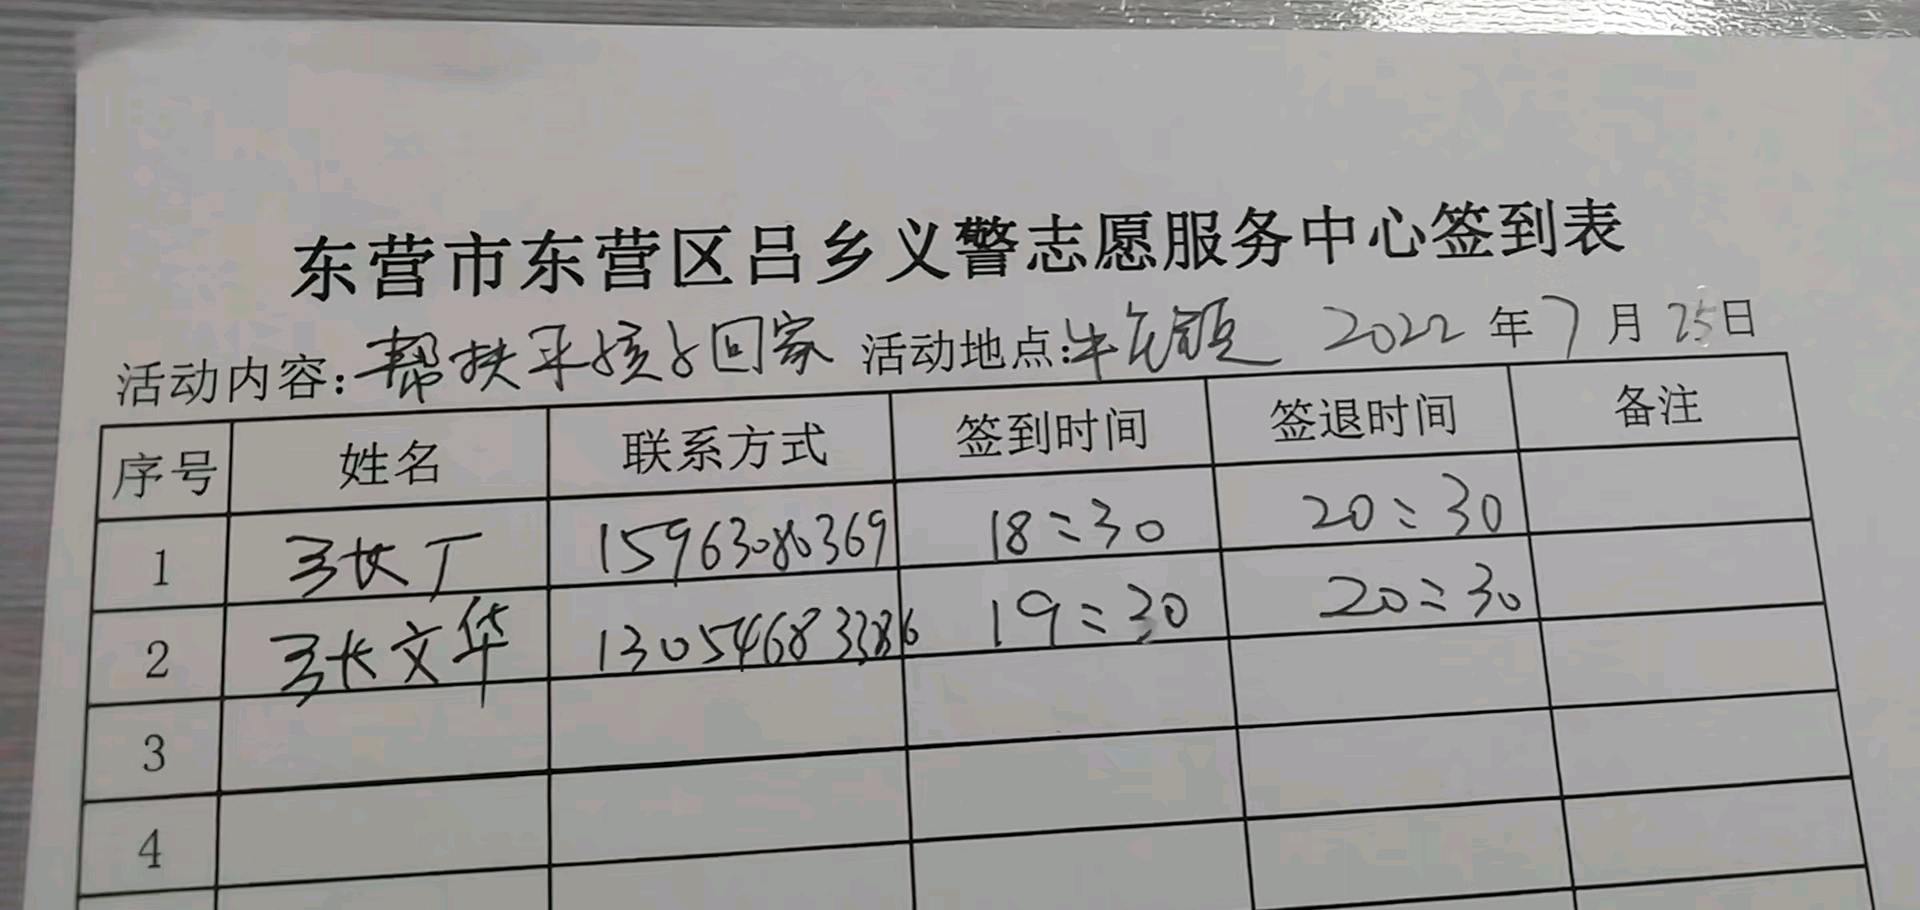 东营市东营区吕乡义警志愿服务中心签到表
活动内容:帮扶 孩子回家 活动地点:牛庄镇 2022 年 7 月 25 日
序号 姓名 联系方式 签到时间 签退时间 备注
1 张 15963086369 18:30 20:30
2 张文华 13054683386 19:30 20:30
3
4